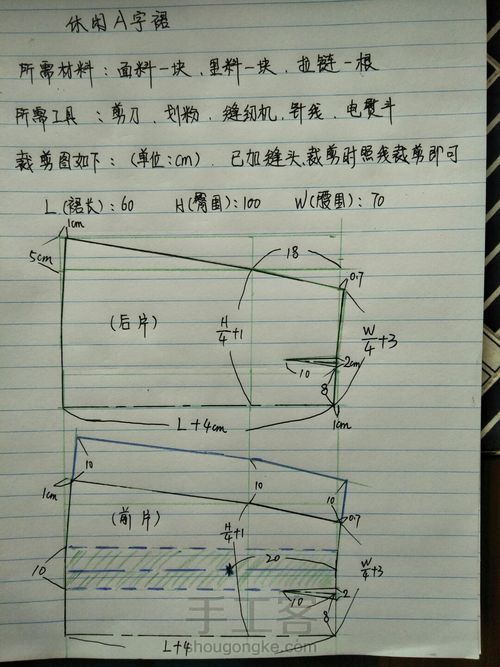 休闲A字裙
所需材料：面料一块，里料一块，拉链一根
所需工具：剪刀、划粉、缝纫机、针线、电熨斗
裁剪图如下：（单位：cm）、已加缝头，裁剪时照线裁剪即可
L（裙长）：60 H（臀围）：100 W（腰围）：70
1cm
5cm
18
0.7
（后片）
H/4+1
W/4+3
2cm
10
8
L+4cm
1cm
10
10
10
1cm
0.7
（前片）
H/4+1
20
W/4+3
10
10
2
8
L+4
手工客
shougongke.com